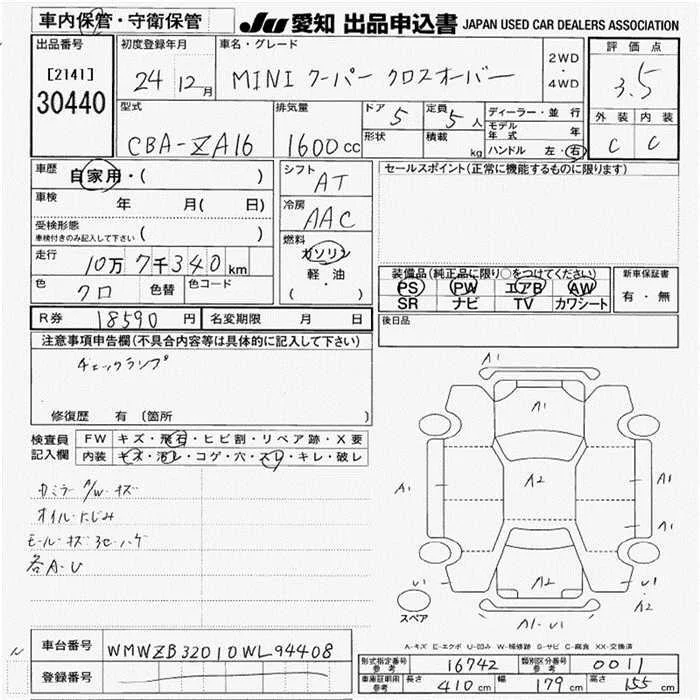 車内保管・守衛保管
JU 愛知 出品申込書 JAPAN USED CAR DEALERS ASSOCIATION
出品番号
[2141]
30440
初度登録年月
24 12月
車名・グレード
MINI クーパー クロスオーバー
2WD・4WD
評価点
3.5
外装 内装
C C
型式
CBA-ZA16
排気量
1600cc
ドア 5
定員 5人
形状
積載 kg
ディーラー・並行
モデル年式 年
ハンドル 左・右
車歴
自家用・( )
車検 年 月( 日)
受検形態
車検付きのみ記入して下さい ( )
走行
10万7千340km
色
クロ
色替
色コード
シフト
AT
冷房
AAC
燃料
ガソリン
軽・油
( ・ )
セールスポイント(正常に機能するものに限ります)
装備品(純正品に限り○をつけてください)
PS PW エアB AW
SR ナビ TV カワシート
新車保証書
有・無
R券 18590円
名変期限 月 日
後日品
注意事項申告欄(不具合内容等は具体的に記入して下さい)
チェックランプ
修復歴 有 (箇所 )
検査員記入欄
FW キズ・飛石・ヒビ割・リペア跡・X要
内装 キズ・汚レ・コゲ・穴・スレ・キレ・破レ
A/W・キズ
オイル・にじみ
モール・キズ
各A・U
A1
A1
A1
A2
A1
A1
A2
U1
U1
A2
A1-U1
スペア
A-キズ E-エクボ U-凹み W-補修跡 S-サビ C-腐食 XX-交換済
車台番号 WMWZB32010WL94408
登録番号
型式指定番号 参考 16742
類別区分番号 参考 0011
車庫証明用 参考 長さ 410cm 幅 179cm 高さ 155cm